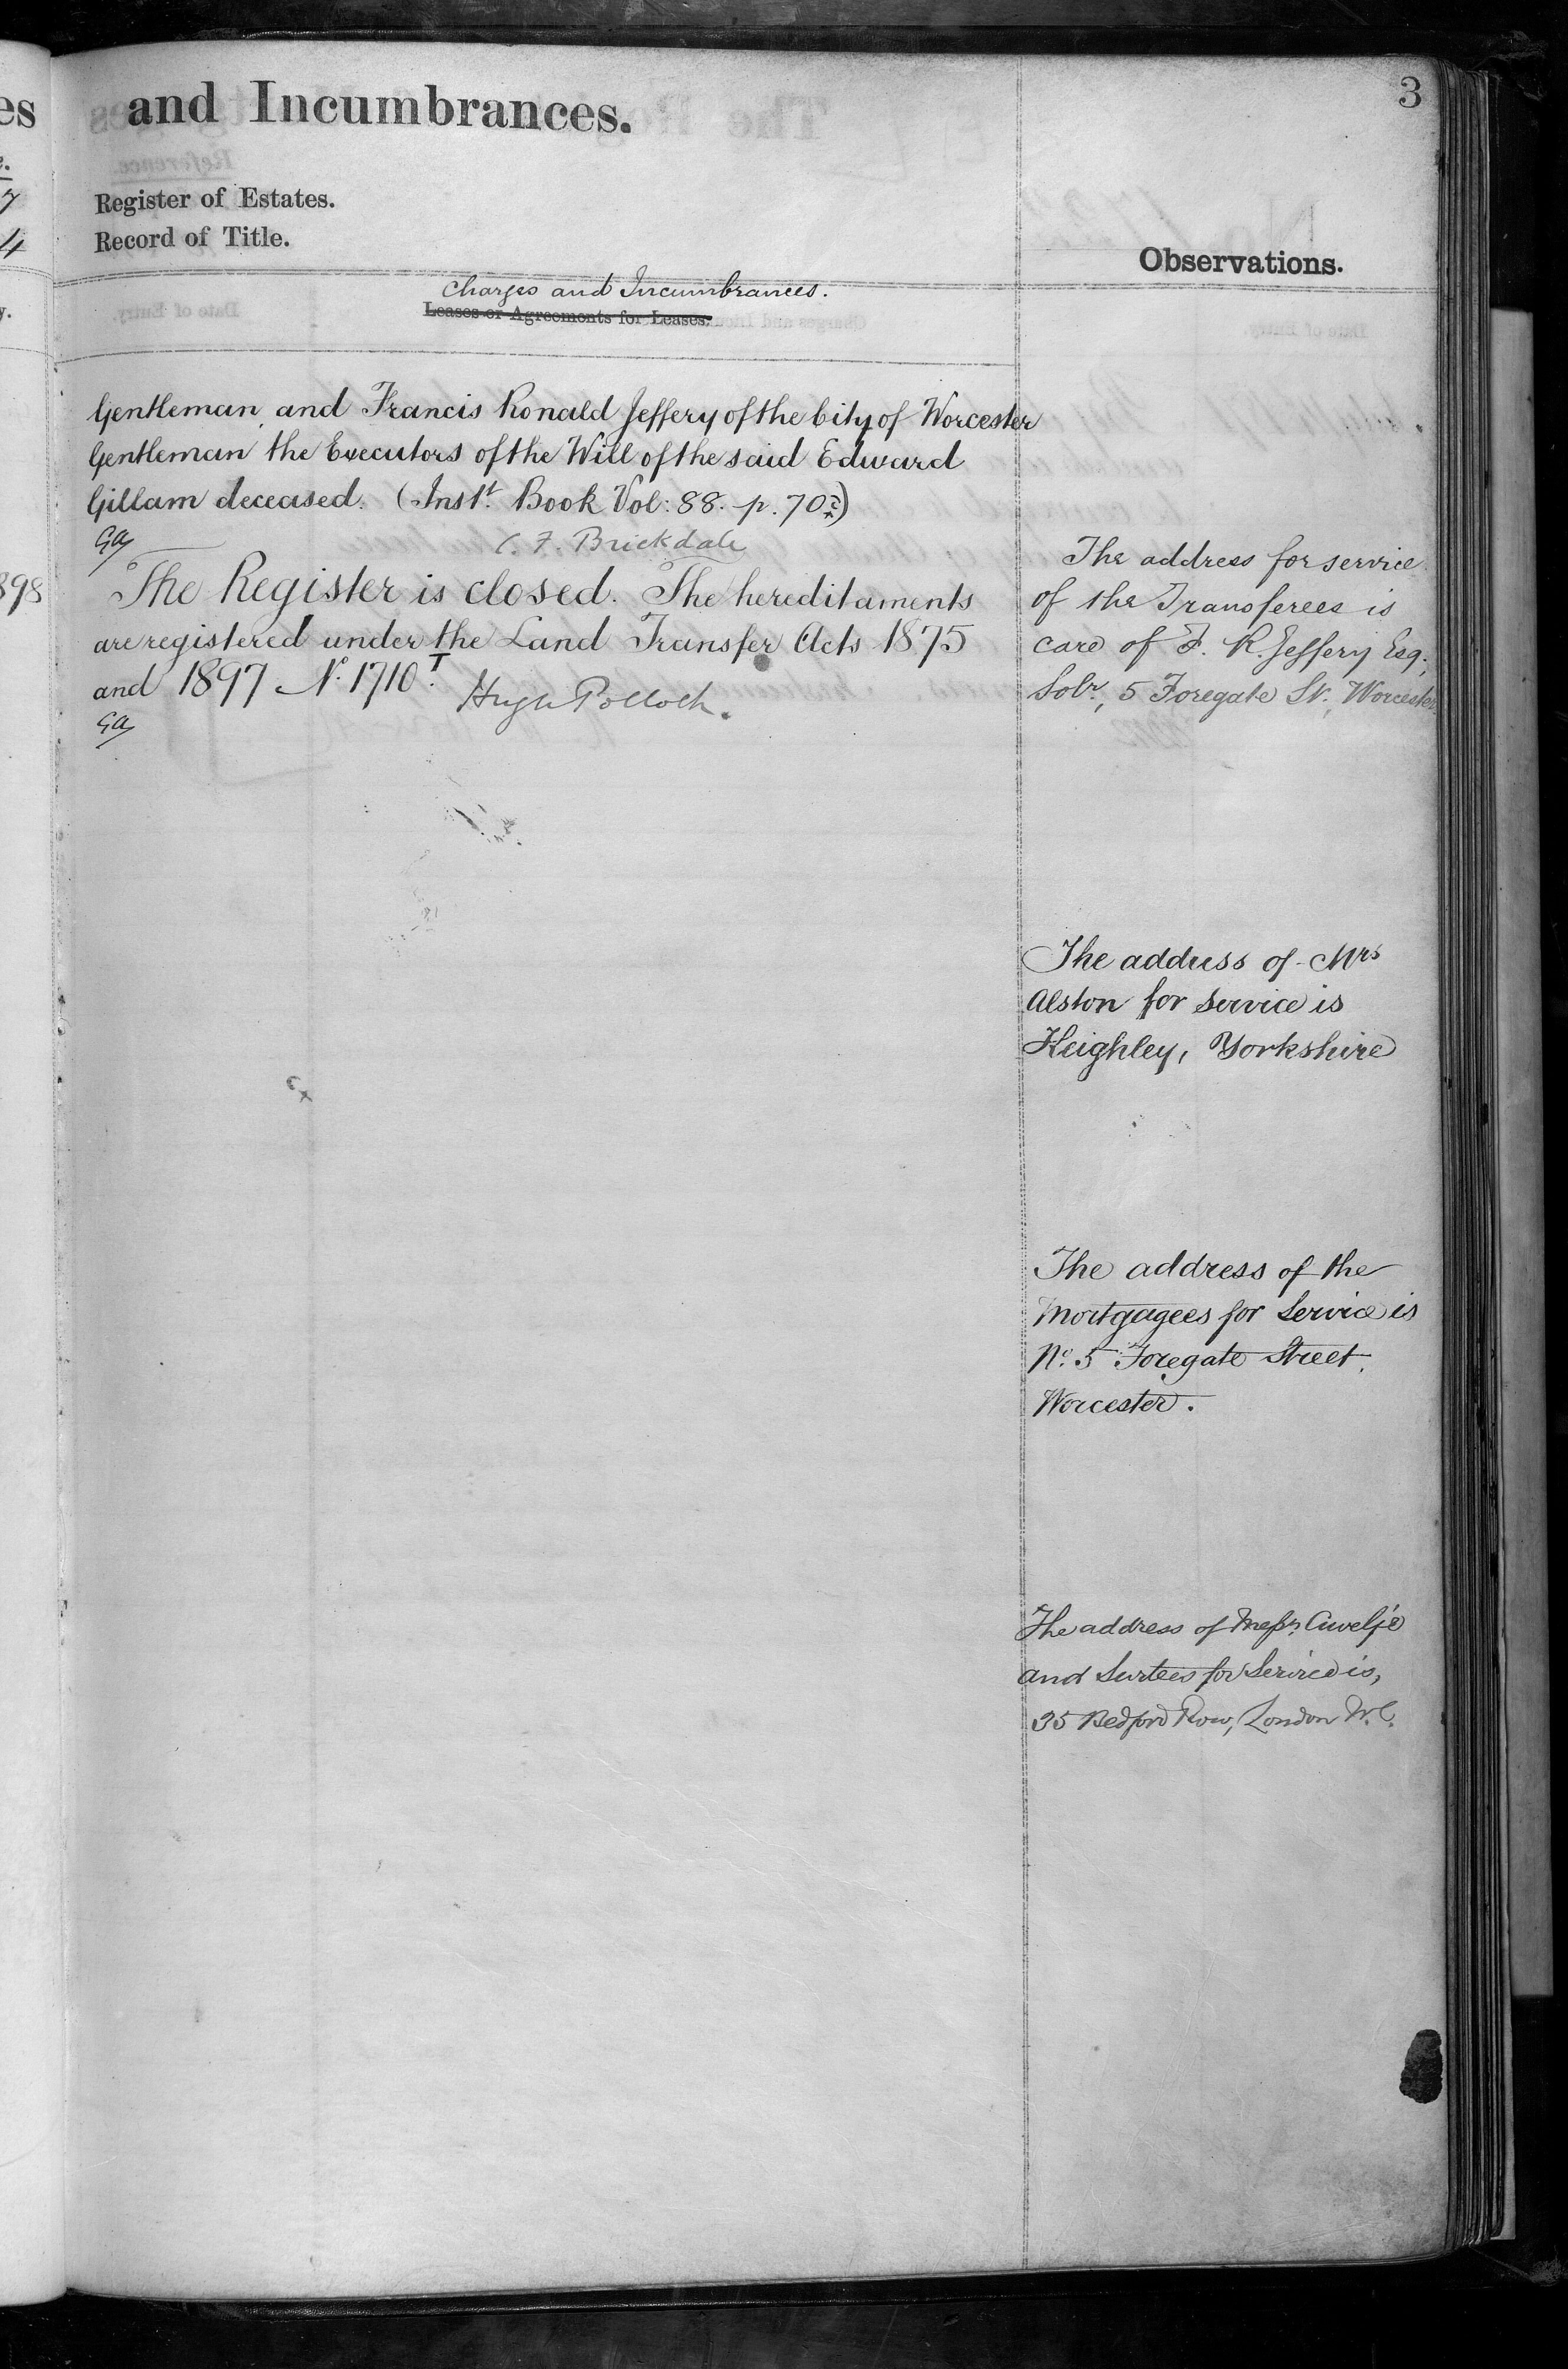 3
and Incumbrances.
Register of Estates.
Record of Title.
Charges and Incumbrances.
Leases or Agreements for Leases.
Gentleman and Francis Ronald Jeffery of the City of Worcester
Gentleman the Executors of the Will of the said Edward
Gillam deceased. (Inst. Book Vol: 88. p. 70)
C. F. Brickdale
The Register is closed. The hereditaments
are registered under the Land Transfer Acts 1875
and 1897 No. 1710.
Hugh Pollock.
Observations.
The address for service
of the Transferees is
care of F. R. Jeffery Esq.,
Solr., 5 Foregate St., Worcester
The address of Mrs
Alston for service is
Keighley, Yorkshire
The address of the
Mortgagees for Service is
No. 5 Foregate Street,
Worcester.
The address of Messrs.
and Surtees for Service is,
35 Bedford Row, London W.C.